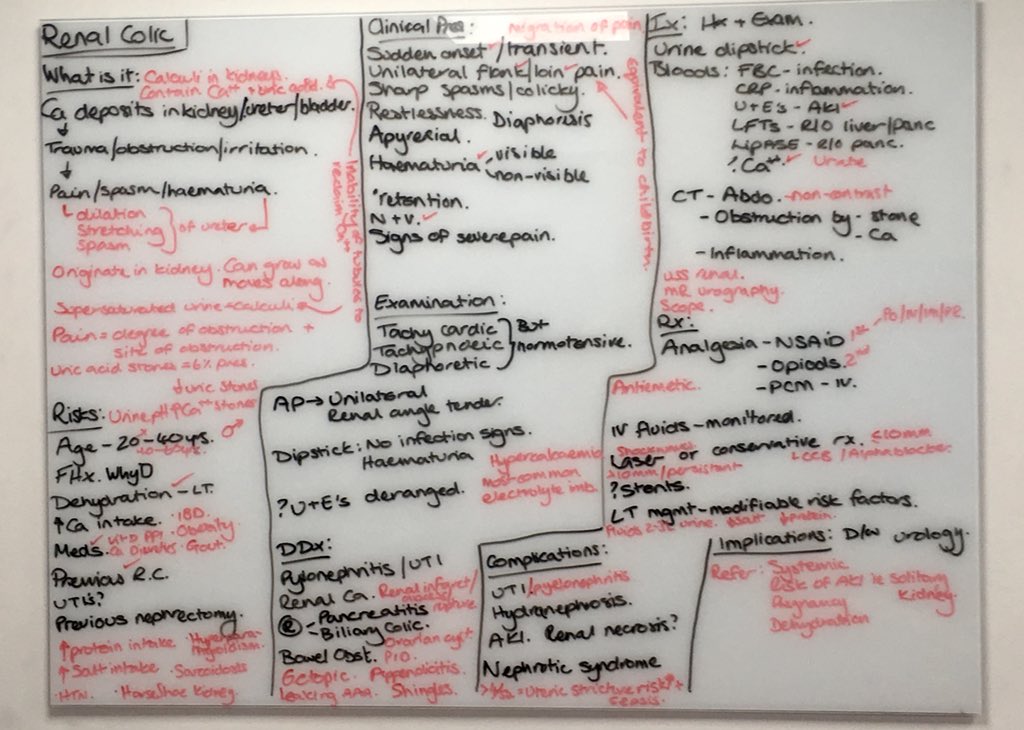 Renal Colic
What is it: Calculi in kidneys.
Contain Ca++ + uric acid.
Ca deposits in kidney/ureter/bladder.
Trauma/obstruction/irritation.
Pain/spasm/haematuria.
dilation
Stretching
Spasm
of ureter
Originate in kidney. Can grow as
moves along.
Supersaturated urine=calculi
Pain = degree of obstruction +
site of obstruction.
Uric acid stones = 6% pres.
↓uric stones
Inability of tubules to
reclaim Ca++
Risks: Urine pH ↑Ca++ stones
Age - 20-40yrs. ♂
FHx. WhyD
Dehydration - LT.
↑Ca intake. · IBD.
Vit D PPI · Obesity
Meds. Ca Diuretics · Gout.
Previous R.C.
UTI's?
Previous nephrectomy.
↑protein intake · Hyperpara-
thyroidism.
↑Salt intake · Sarcoidosis
·HTN. · HorseShoe Kidney.
Clinical Pres: migration of pain
Sudden onset/transient.
Unilateral flank/loin pain.
Sharp spasms/colicky.
Restlessness. Diaphoresis
Apyrexial.
Haematuria - visible
non-visible
retention.
N+V.
Signs of severe pain.
equivalent to childbirth.
Examination:
Tachycardic
Tachypnoeic
Diaphoretic
But
normotensive.
AP → Unilateral
Renal angle tender.
Dipstick: No infection signs.
Haematuria
Hypercalcaemia
most common
electrolyte imb.
?U+E's deranged.
DDx:
Pyelonephritis/UTI
Renal Ca. Renal infarct/
rupture
R - Pancreatitis
- Biliary Colic. Ovarian cyst.
Bowel Obst. PID.
Ectopic. Appendicitis.
Leaking AAA. Shingles.
Complications:
UTI/pyelonephritis
Hydronephrosis.
AKI. Renal necrosis?
Nephrotic syndrome
= Uteric stricture risk↑ +
sepsis.
Ix: Hx + Exam.
Urine dipstick.
Bloods: FBC - infection.
CRP - inflammation.
U+E's - AKI
LFTs - R/O liver/panc
LIPASE - R/O panc.
? Ca++. Urate
CT - Abdo. -non-contrast
- Obstruction by - stone
- Ca
- Inflammation.
USS renal.
MR urography.
Scope.
Rx:
Analgesia - NSAID 1st PO/IV/IM/PR.
- Opiods. 2nd
- PCM - IV.
Antiemetic.
IV fluids - monitored.
Shockwaves
Laser or conservative rx. ≤10mm
>10mm/persistant LCCB/Alphablocker.
?Stents.
LT mgmt - modifiable risk factors.
Fluids 2-3L urine. ↓salt ↓protein.
Implications: D/w urology.
Refer: Systemic
Risk of AKI ie Solitary
Kidney.
Pregnancy
Dehydration